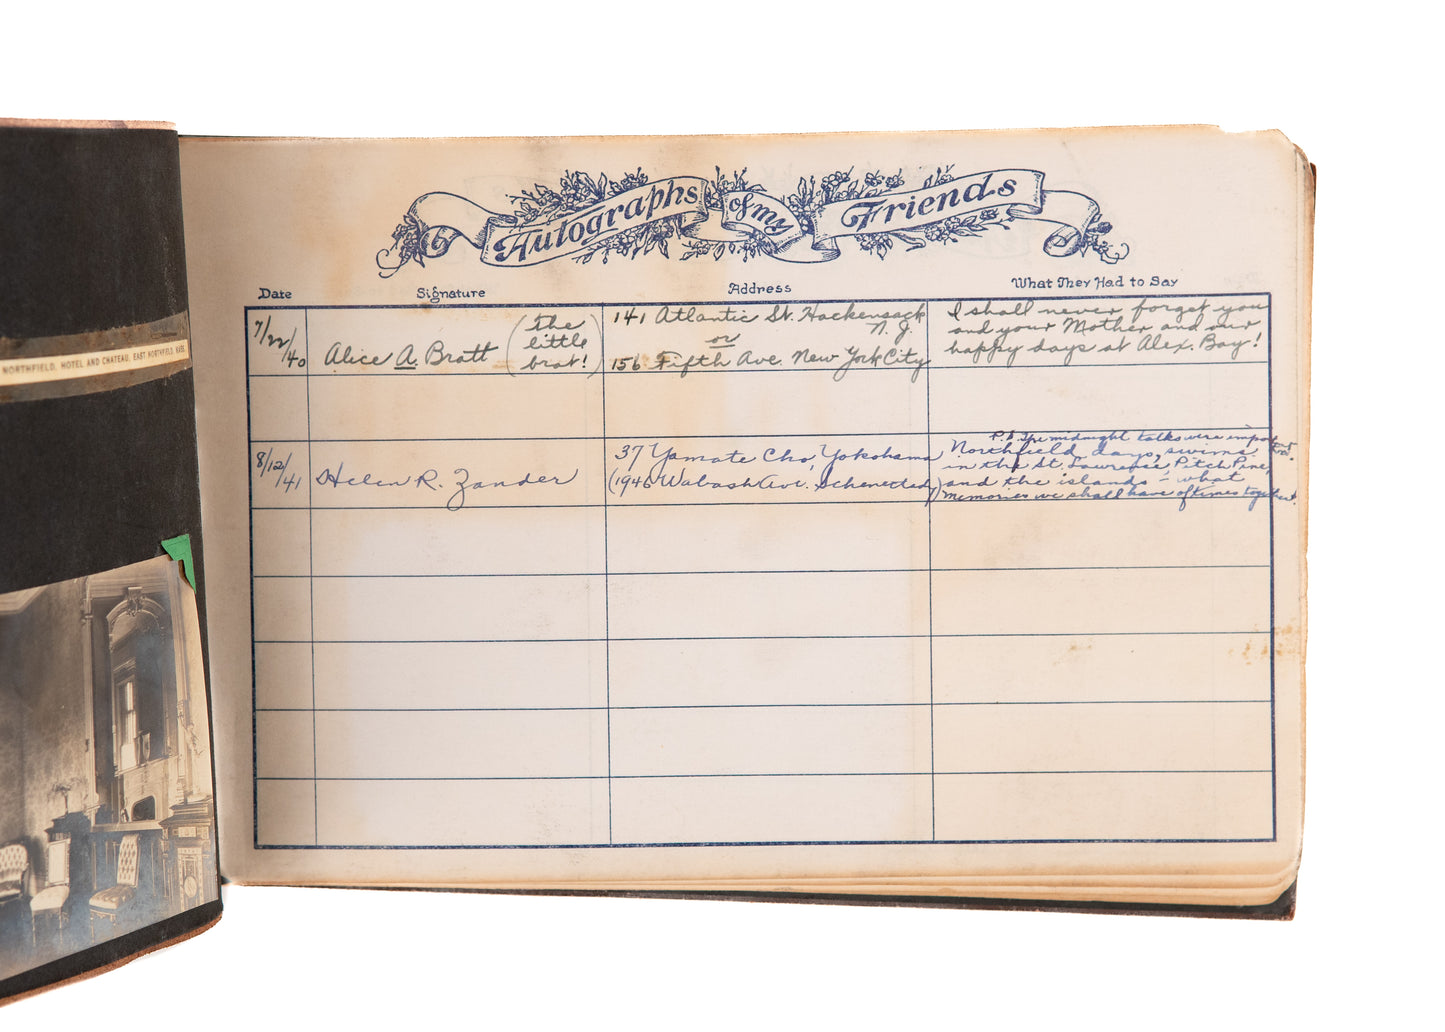 NORTHFIELD, HOTEL AND CHATEAU, EAST NORTHFIELD, MASS.
Autographs of my Friends
Date Signature Address What They Had to Say
7/22/40
Alice A. Bratt
(the
little
brat!)
141 Atlantic St. Hackensack
N. J.
or
156 Fifth Ave. New York City
I shall never forget you
and your Mother and our
happy days at Alex. Bay!
8/12/41
Helen R. Zander
37 Yamate Cho, Yokohama
(1946 Wabash Ave. Schenectady)
P.S. The midnight talks were important.
Northfield days, swims
in the St. Lawrence, Pitch Pine,
and the islands - what
memories we shall have ofttimes together!